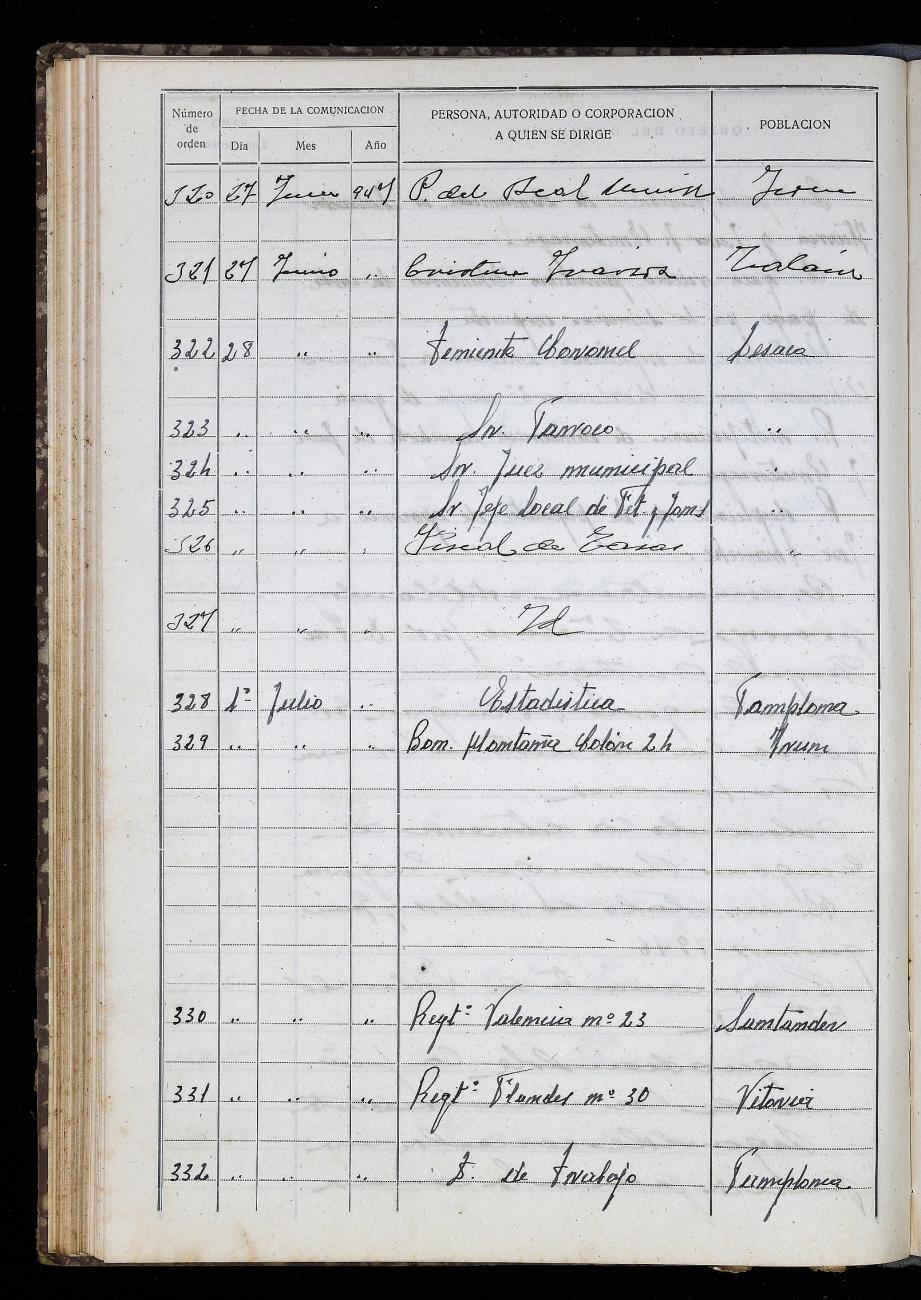 Número de orden FECHA DE LA COMUNICACION PERSONA, AUTORIDAD O CORPORACION A QUIEN SE DIRIGE POBLACION
Día Mes Año
320 27 Junio 947 P. del
321 27 Junio ,,
322 28 ,, ,, Teniente Coronel Lesaca
323 ,, ,, ,, Sr. Parroco ,,
324 ,, ,, ,, Sr. Juez municipal ,,
325 ,, ,, ,, Sr Jefe Local de Fet y Jons ,,
326 ,, ,, ,, Fiscal de Tasas ,,
327 ,, ,, ,, Id
328 1º Julio ,, Estadistica Pamplona
329 ,, ,, ,, Bon. Montaña Colón 24 Irun
330 ,, ,, ,, Regtº Valencia nº 23 Santander
331 ,, ,, ,, Regtº Flandes nº 30 Vitoria
332 ,, ,, ,, D. de Trabajo Pamplona